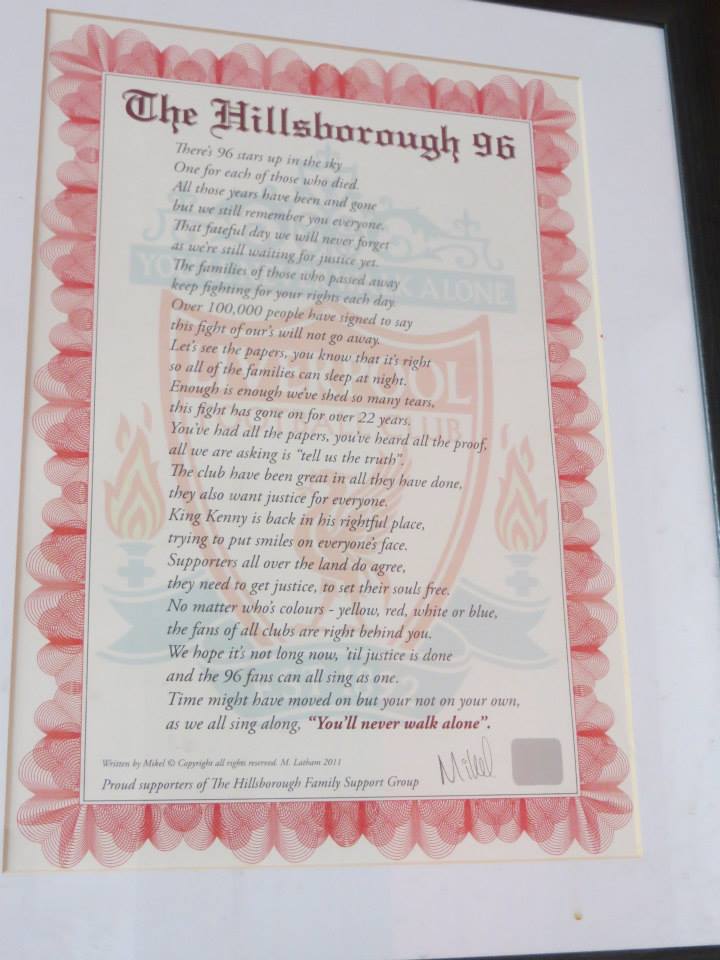 The Hillsborough 96
There's 96 stars up in the sky
One for each of those who died.
All those years have been and gone
but we still remember you everyone.
That fateful day we will never forget
as we're still waiting for justice yet.
The families of those who passed away
keep fighting for your rights each day.
Over 100,000 people have signed to say
this fight of our's will not go away.
Let's see the papers, you know that it's right
so all of the families can sleep at night.
Enough is enough we've shed so many tears,
this fight has gone on for over 22 years.
You've had all the papers, you've heard all the proof,
all we are asking is "tell us the truth".
The club have been great in all they have done,
they also want justice for everyone.
King Kenny is back in his rightful place,
trying to put smiles on everyone's face.
Supporters all over the land do agree,
they need to get justice, to set their souls free.
No matter who's colours - yellow, red, white or blue,
the fans of all clubs are right behind you.
We hope it's not long now, 'til justice is done
and the 96 fans can all sing as one.
Time might have moved on but your not on your own,
as we all sing along, "You'll never walk alone".
Written by Mikel © Copyright all rights reserved. M. Latham 2011
Proud supporters of The Hillsborough Family Support Group
Mikel